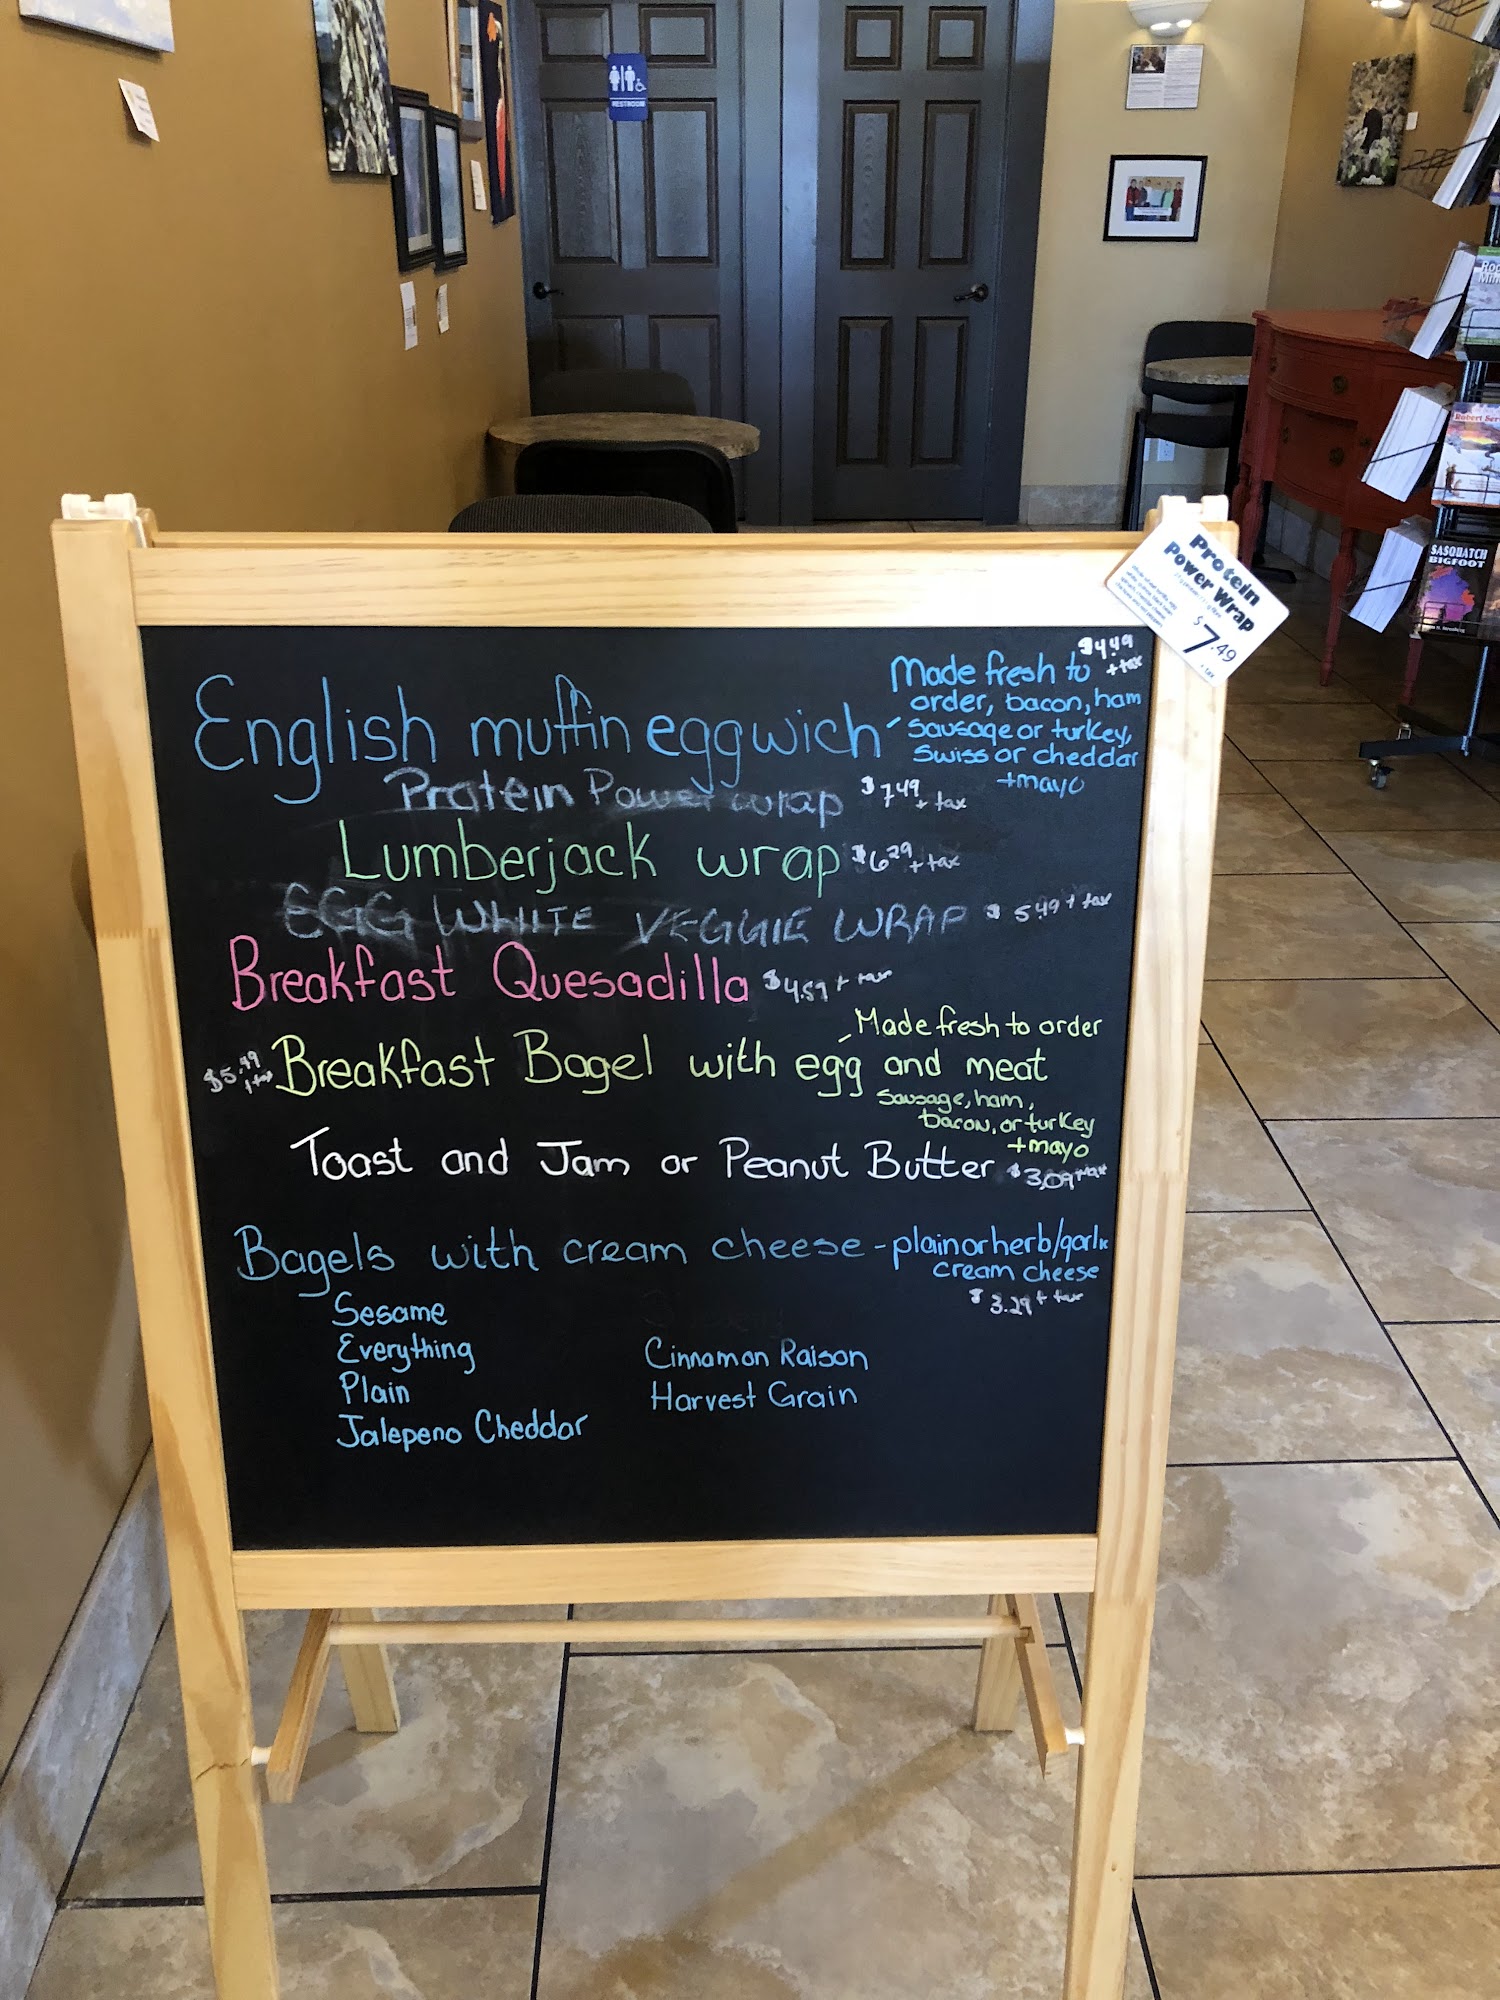 RESTROOM
Protein
Power Wrap
$7.49
+ tax
SASQUATCH
BIGFOOT
$4.49
+ tax
English muffin eggwich - Made fresh to
order, bacon, ham
sausage or turkey,
Swiss or cheddar
+mayo
Protein Power wrap $7.49 + tax
Lumberjack wrap $6.29 + tax
EGG WHITE VEGGIE WRAP $5.49 + tax
Breakfast Quesadilla $4.59 + tax
Made fresh to order
$5.49 + tax Breakfast Bagel with egg and meat
sausage, ham,
bacon, or turkey
+mayo
Toast and Jam or Peanut Butter $3.09 + tax
Bagels with cream cheese - plain or herb/garlic
cream cheese
$3.29 + tax
Sesame
Everything
Plain
Jalepeno Cheddar
Cinnamon Raison
Harvest Grain